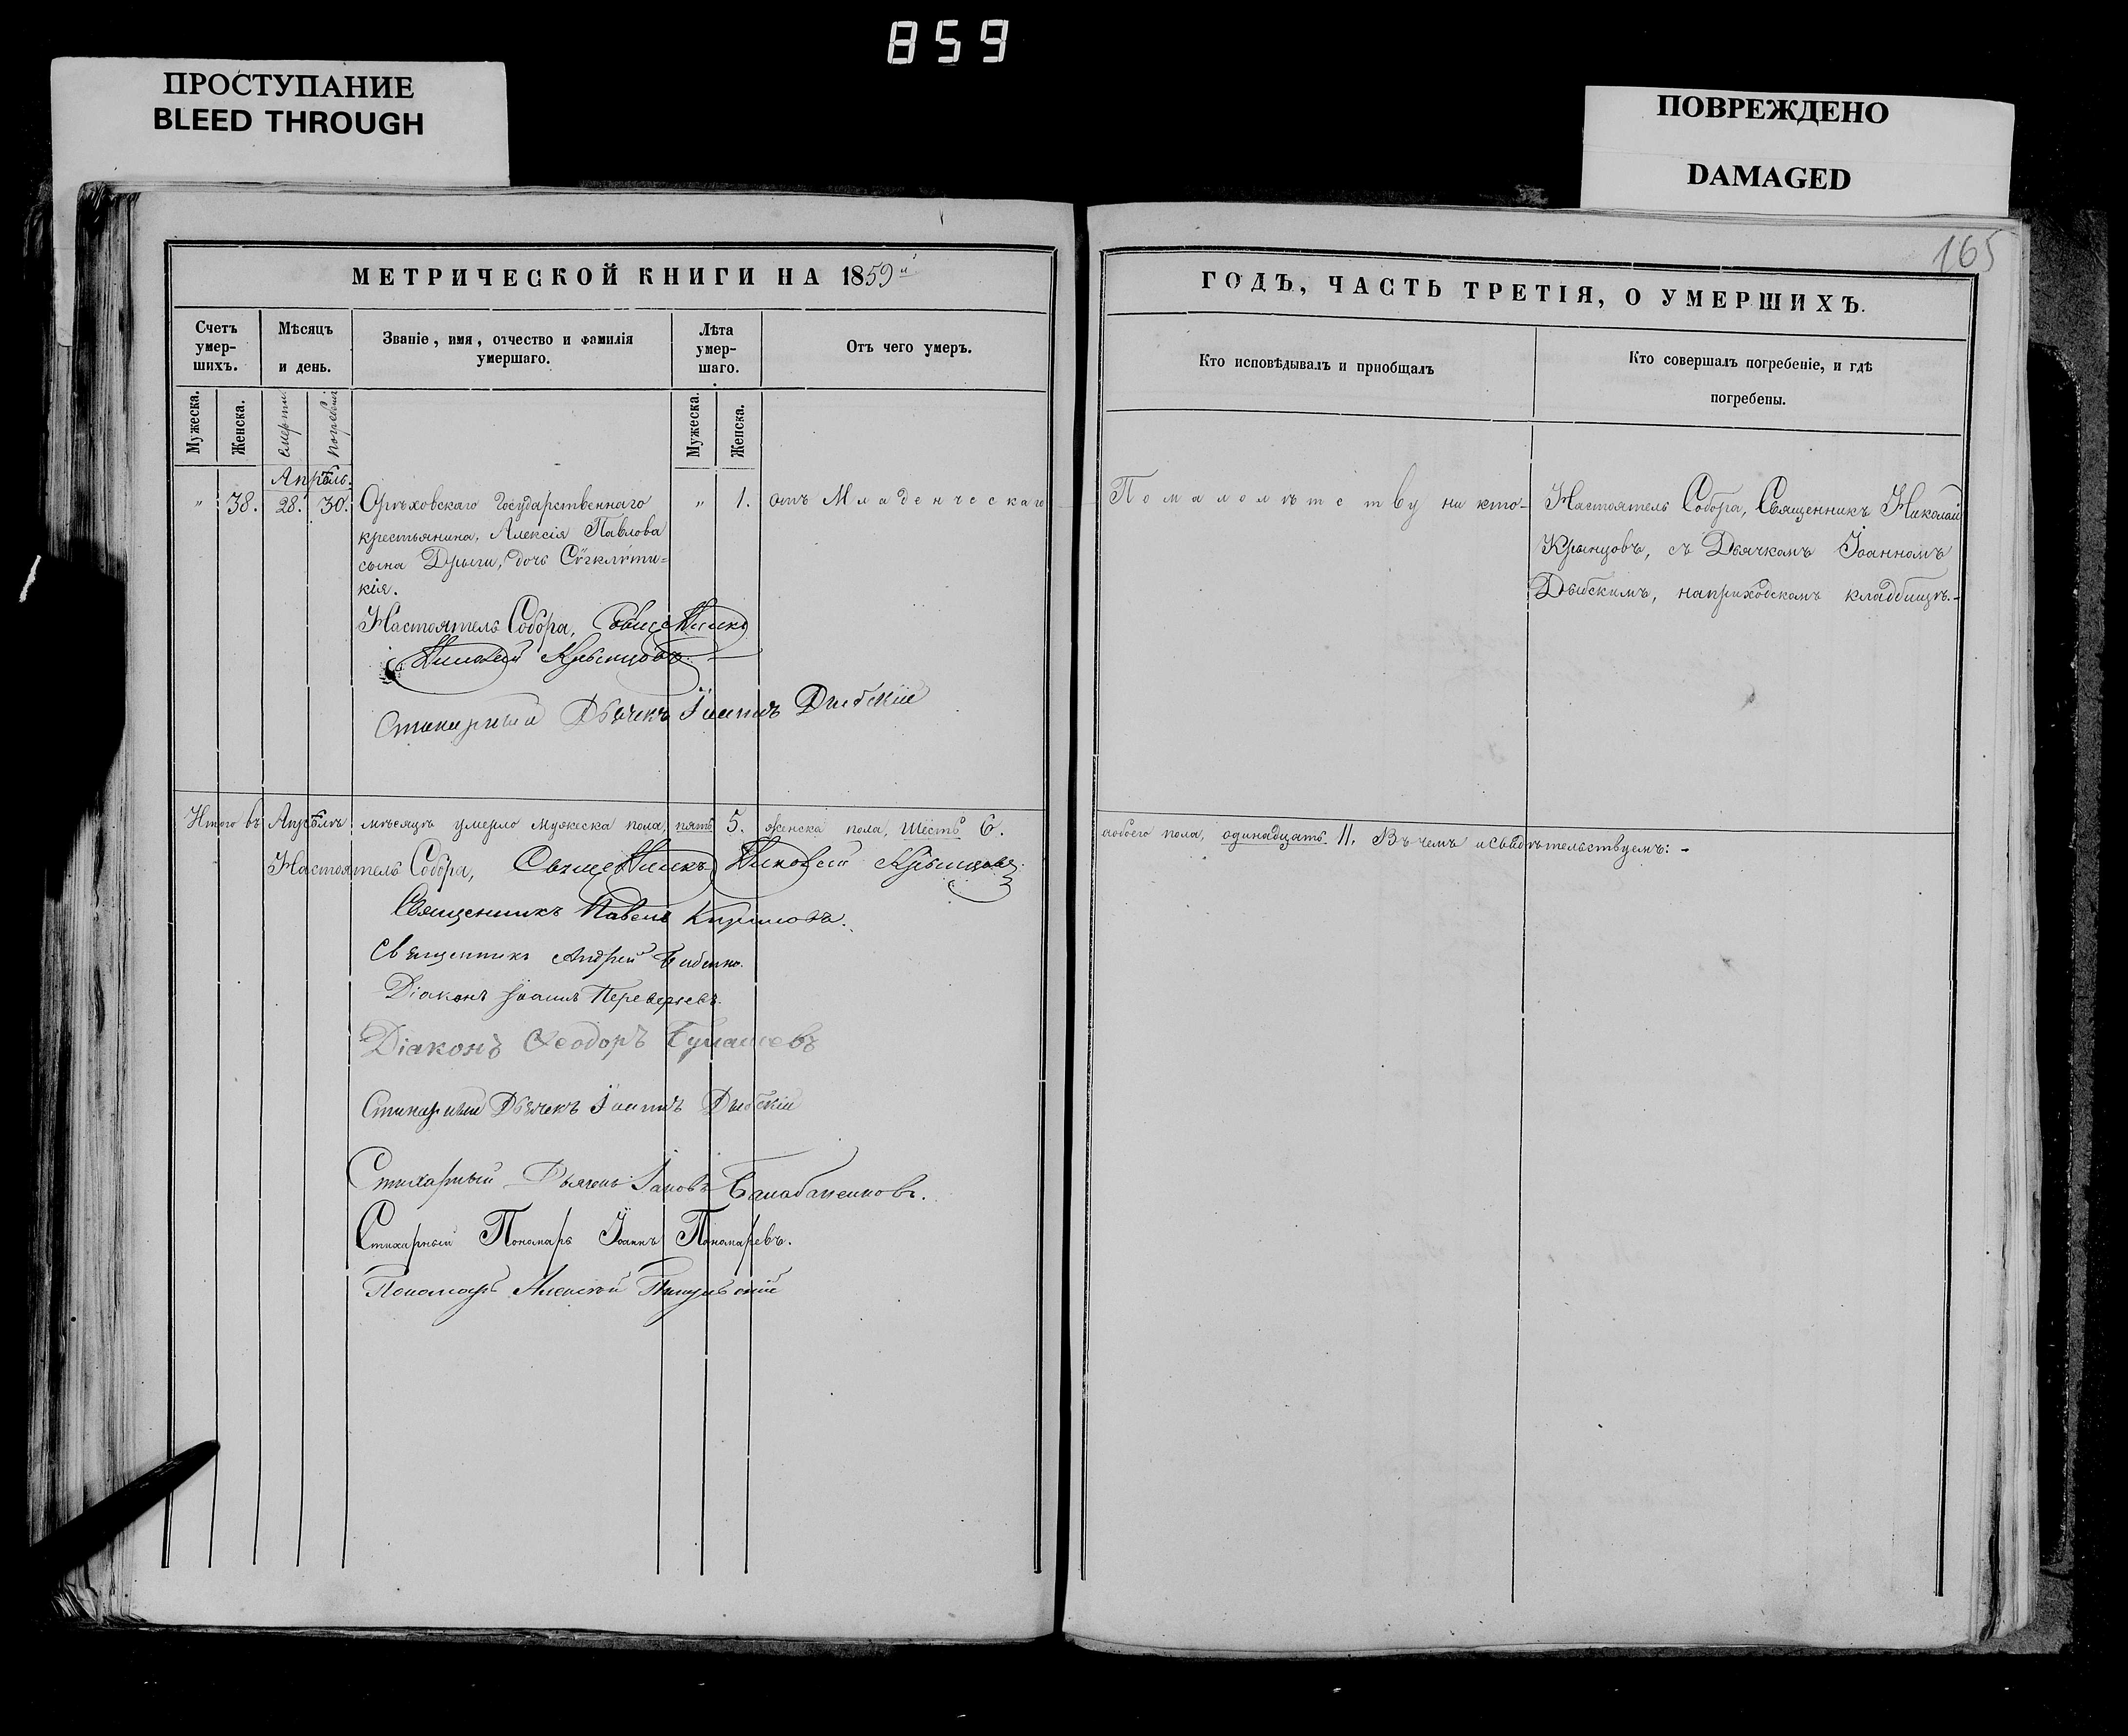 859
ПРОСТУПАНИЕ
BLEED THROUGH
ПОВРЕЖДЕНО
DAMAGED
165
МЕТРИЧЕСКОЙ КНИГИ НА 1859й
ГОДЪ, ЧАСТЬ ТРЕТІЯ, О УМЕРШИХЪ.
Счетъ умер-шихъ.
Мѣсяцъ и день.
Званіе, имя, отчество и фамилія умершаго.
Лѣта умер-шаго.
Отъ чего умеръ.
Кто исповѣдывалъ и пріобщалъ
Кто совершалъ погребеніе, и гдѣ погребены.
Мужеска.
Женска.
Смерти
Погребенія
Мужеска.
Женска.
Апрѣль.
" 38. 28. 30. Орѣховскаго Государственнаго " 1. отъ Младенческаго
крестьянина, Алексія Павлова
сына Дрыги, дочь Сѵгклити=
кія.
По малолѣтству ни кто-
Настоятель Собора, Священникъ Николай
Крынцовъ, съ Дьячкомъ Іоанномъ
Дыбскимъ, на приходскомъ кладбищѣ.-
Настоятель Собора, Священникъ
Николай Крынцовъ
Стихарный Дьячекъ Іоаннъ Дыбскій
Итого въ Апрѣлѣ мѣсяцѣ умерло мужеска пола, пять 5. женска пола, шесть 6.
а обоего пола, одинадцать 11. Въ чемъ и свидѣтельствуемъ: -
Настоятель Собора, Священникъ Николай Крынцовъ
Священникъ Павелъ
Священникъ Андрей
Діаконъ Іоаннъ Переверзевъ.
Діаконъ Ѳеодоръ
Стихарный Дьячекъ Іоаннъ Дыбскій
Стихарный Дьячекъ Іаковъ Балабаненковъ.
Стихарный Пономарь Іоаннъ Пономаревъ.
Пономарь Алексѣй